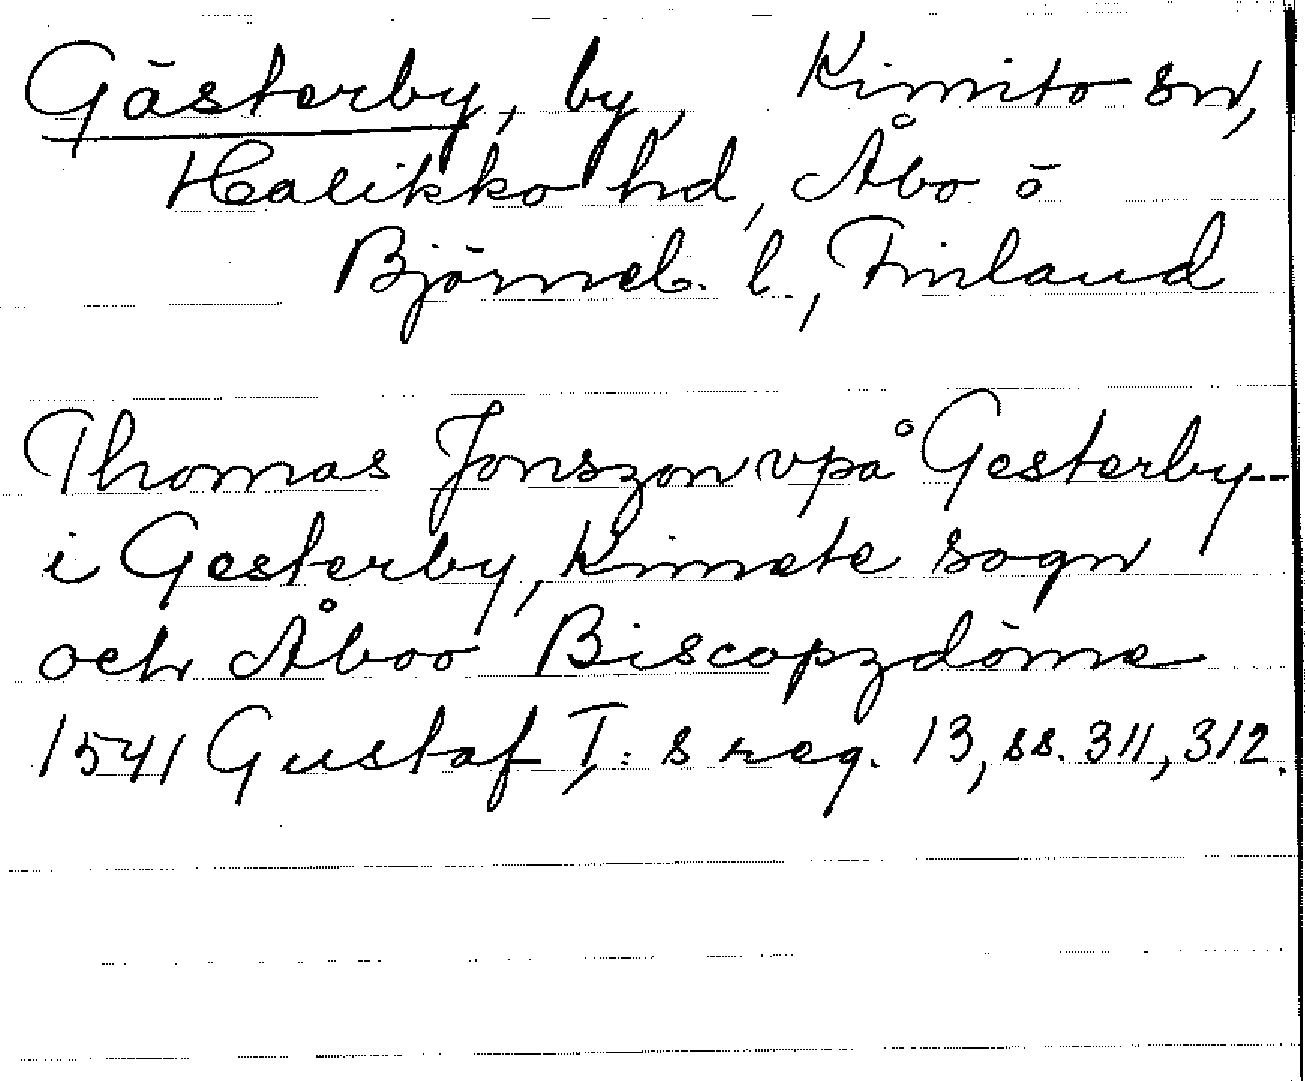 Gästerby, by, Kimito sn,
Halikko hd, Åbo ö
Björneb. l., Finland
Thomas Jonszon vpå Gesterby--
i Gesterby, Kimete sogn
och Åboo Biscopzdöme
1541 Gustaf I:s reg. 13, ss. 311, 312.